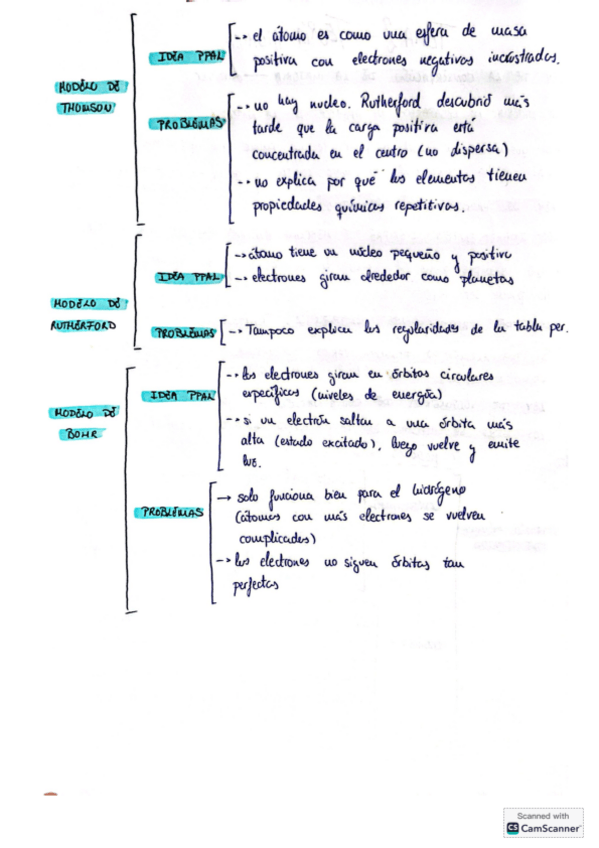 MODELO DE
THOMSON
IDEA PPAL
--> el átomo es como una esfera de masa
positiva con electrones negativos incrustrados.
PROBLEMAS
--> no hay nucleo. Rutherford descubrió más
tarde que la carga positiva está
concentrada en el centro (no dispersa)
--> no explica por qué los elementos tienen
propiedades químicas repetitivas.
MODELO DE
RUTHERFORD
IDEA PPAL
--> átomo tiene un núcleo pequeño y positivo
--> electrones giran alrededor como planetas
PROBLEMAS
--> Tampoco explican las regularidades de la tabla per.
MODELO DE
BOHR
IDEA PPAL
--> los electrones giran en órbitas circulares
específicas (niveles de energía)
--> si un electrón saltan a una órbita más
alta (estado excitado), luego vuelve y emite
luz.
PROBLEMAS
→ solo funciona bien para el hidrógeno
(átomos con más electrones se vuelven
complicados)
--> los electrones no siguen órbitas tan
perfectas
Scanned with
CS CamScanner